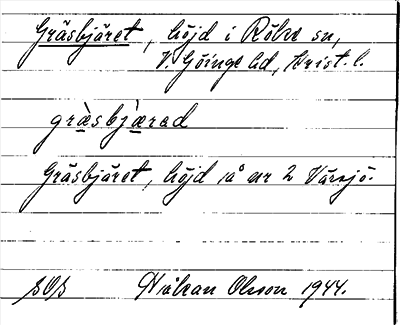 Gräsbjäret, höjd i Röke sn,
V. Göinge hd, Krist. l.
gràsbjàrad
Gräsbjäret, höjd på nr 2 Värsjö.
SOS Håkan Olsson 1944.